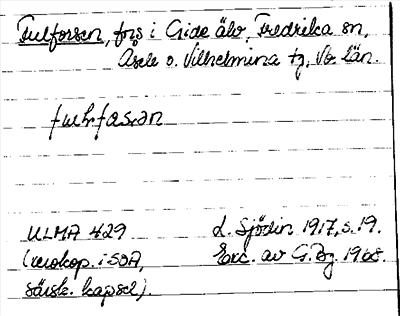 Fulforsen, fors i Gide älv, Fredrika sn,
Åsele o. Vilhelmina tg, Vb län.
fuḷfɑsən
ULMA 429 L. Sjödin 1917, s. 19.
(xerokop. i SOA, Exc. av G. Bg 1968.
särsk. kapsel)